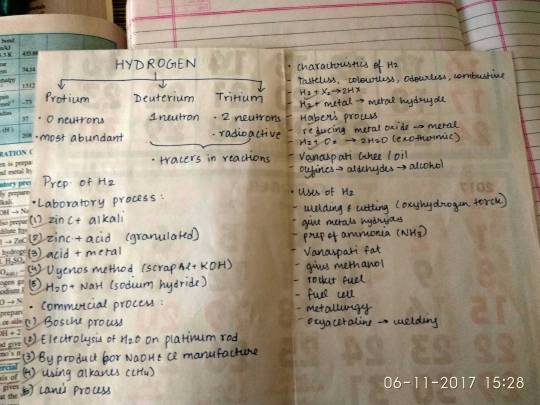 HYDROGEN
Protium Deuterium Tritium
• 0 neutrons 1 neutron • 2 neutrons
• most abundant • radioactive
• tracers in reactions
Prep. of H2
• Laboratory process:
(1) zinc + alkali
(2) zinc + acid (granulated)
(3) acid + metal
(4) Uyenos method (scrap Al + KOH)
(5) H2O + NaH (sodium hydride)
• Commercial process:
(1) Bosche process
(2) Electrolysis of H2O on platinum rod
(3) By product for NaOH & Cl manufacture
(4) using alkanes (CH4)
(5) Lane's process
• Characteristics of H2
Tasteless, colourless, odourless, combustine
- H2 + X2 → 2HX
- H2 + metal → metal hydryde
- Haber's process
- reducing metal oxide → metal
- H2 + O2 → 2H2O (exothermic)
- Vanaspati Ghee / oil
- Olefines → aldehydes → alcohol
• Uses of H2
- welding & cutting (oxyhydrogen torch)
- give metals hydrydes
- prep of ammonia (NH3)
- Vanaspati fat
- gives methanol
- rocket fuel
- fuel cell
- metallurgy
- oxyacetaline → welding
06-11-2017 15:28